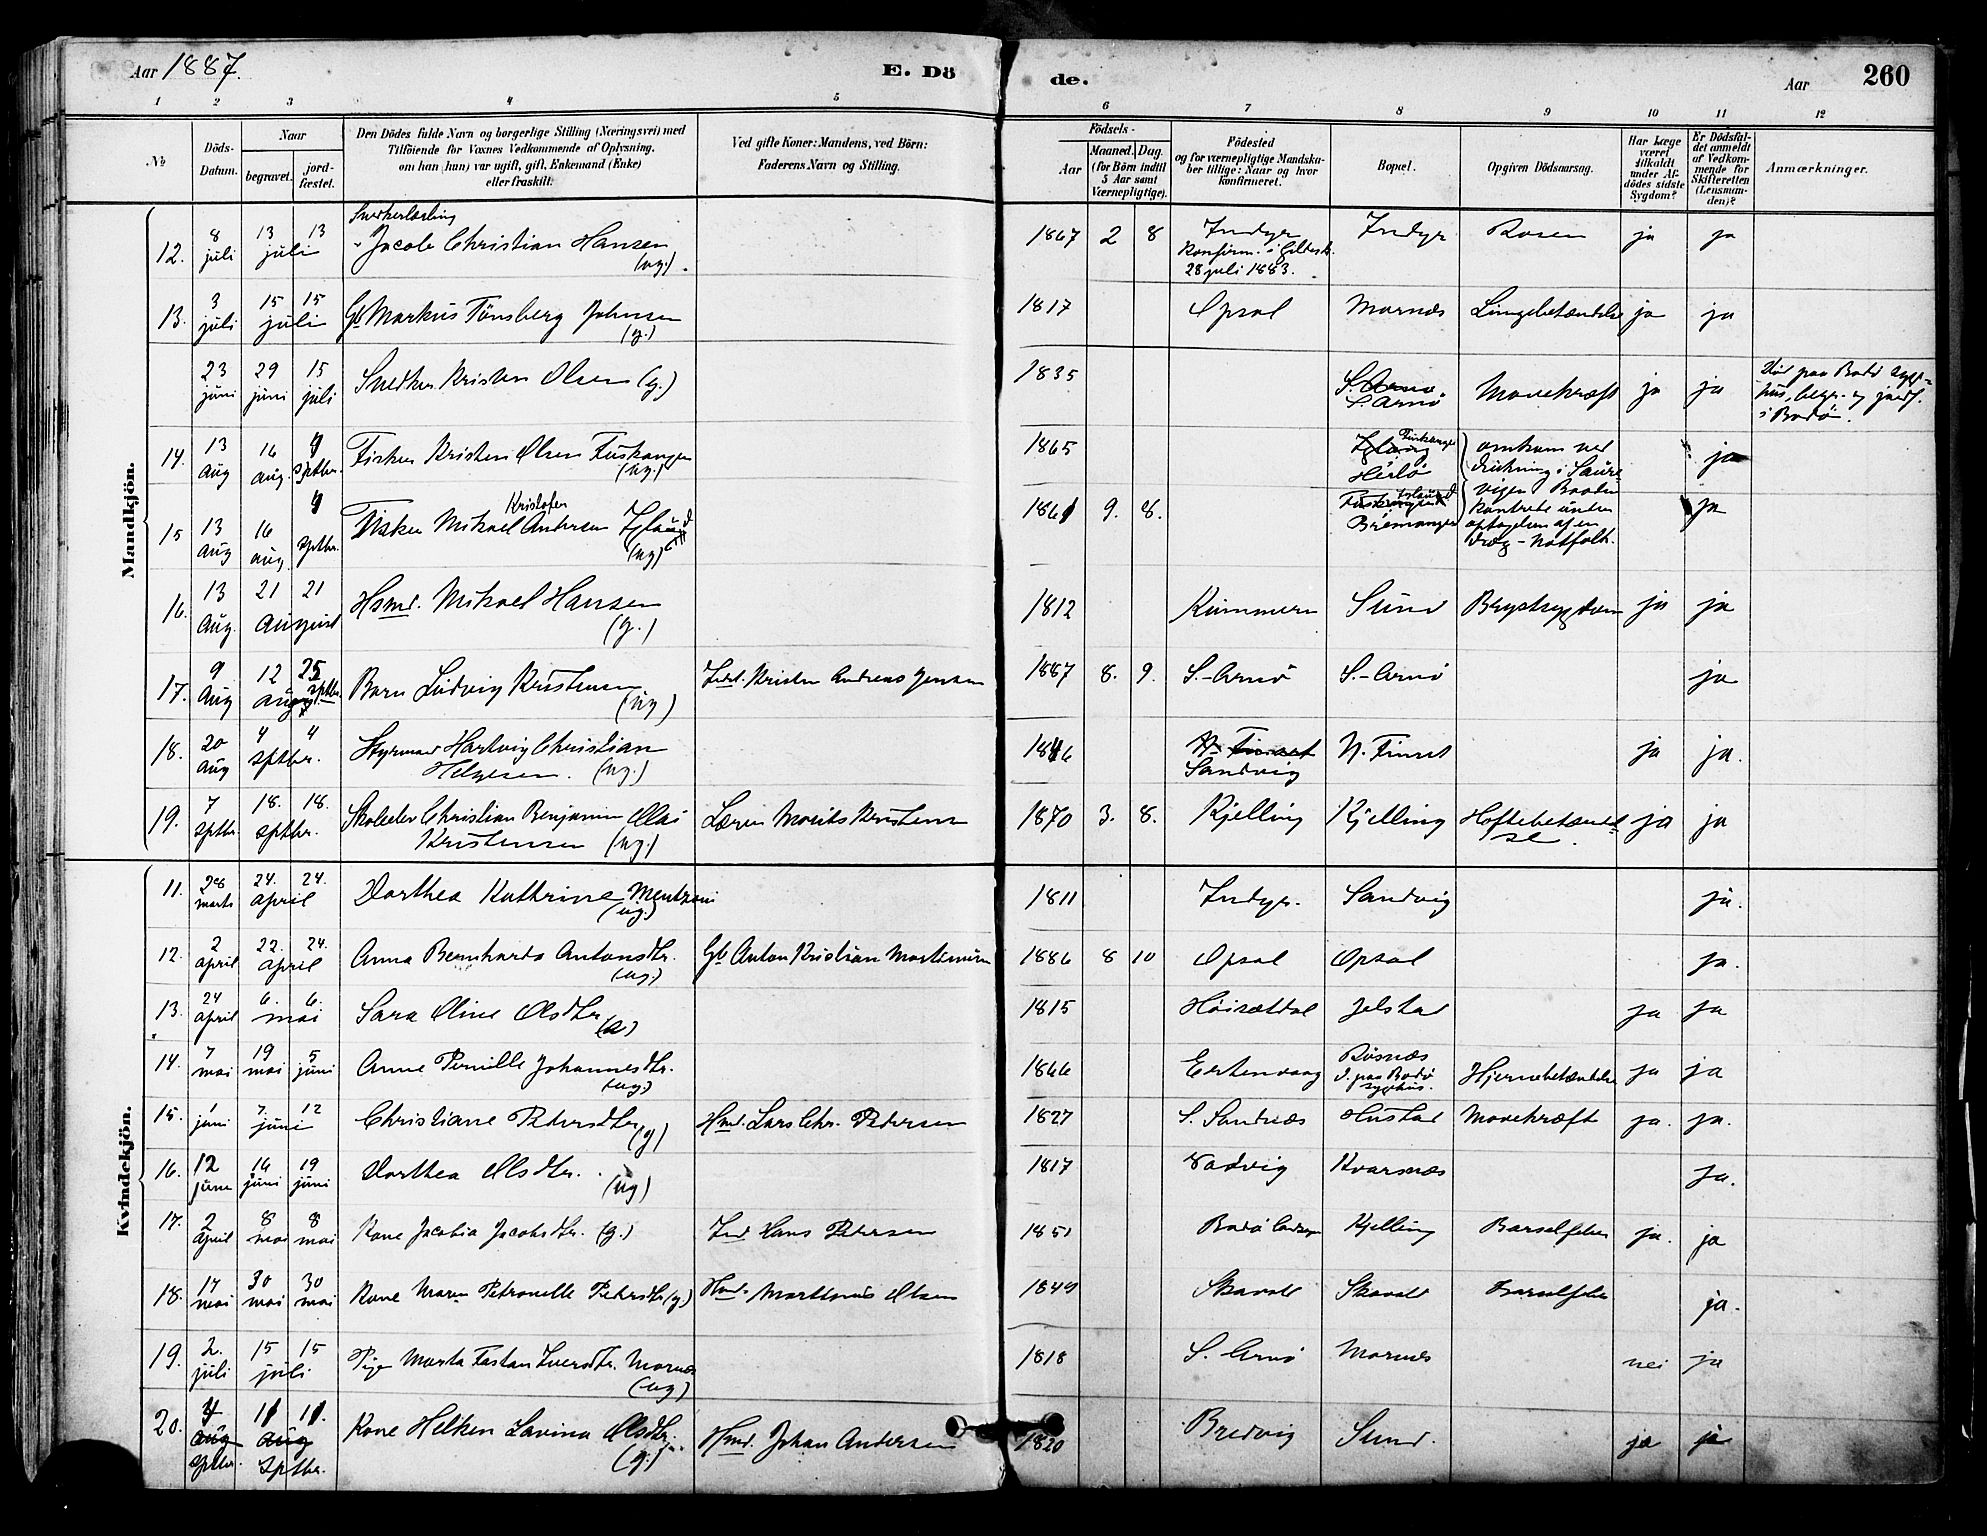 Aar 1887.
E. Dö
de.
Aar
260
1 2 3 4 5 6 7 8 9 10 11 12
No
Döds-
Datum.
Naar
begravet.
jord-
fæstet.
Den Dödes fulde Navn og borgerlige Stilling (Næringsvei) med
Tilföiende for Voxnes Vedkommende af Oplysning,
om han (hun) var ugift, gift, Enkemand (Enke)
eller fraskilt.
Ved gifte Koner: Mandens, ved Börn:
Faderens Navn og Stilling.
Födsels-
Aar
Maaned. Dag.
(for Börn indtil
5 Aar samt
Værnepligtige).
Födested
og for værnepligtige Mandska-
ber tillige: Naar og hvor
konfirmeret.
Bopæl.
Opgiven Dödsaarsag.
Har Læge
været
tilkaldt
under Af-
dödes sidste
Sygdom?
Er Dödsfal-
det anmeldt
af Vedkom-
mende for
Skifteretten
(Lensman-
den)?
Anmærkninger.
Mandkjön.
12. 8 juli 13 13 juli Snedkerlærling Jacob Christian Hansen (ug). 1867 2 8 Indyr Konfirm. i Gildesk. 28 juli 1883. Indyr Rosen ja ja
13. 3 juli 15 15 juli Gb Markus Tönsberg Johnsen (g.) 1817 Opsal Mornæs Lungebetændelse ja ja
23 juni 29 juni 15 juli Snedker Kristen Olsen (g.) 1835 S. Arnö S. Arnö Mavekræft ja ja Död paa Bodö Syge-
hus, begr. og jordf.
i Bodö.
14. 13 aug 16 aug. 4 Sptbr. Fisker Kristen Olsen Fuskanger (ug.) 1865 Herlö omkom ved ja
15 13 aug 16 aug 4 sptbr. Fisker Mikael Kristofer Andersen (ug) 1861 9. 8. Bremanger
vigen Baaden
kantrede under
optagelsen af en
ja
16. 13 Aug. 21 21 August Hsmd. Mikael Hansen (g.) 1812 Kummern Sund Brystsygdom ja ja
17. 9 Aug 12 aug 25 sptbr. Barn Ludvig Kristensen (ug) Indst. Kristen Andreas Jensen 1887 8. 9. S.-Arnö S.-Arnö ja
18. 20 aug 4 4 sptbr. Styrmand Hartvig Christian
Helgesen. (ug.) 1846 Sandvig N. Finset ja ja.
19. 7 sptbr. 18. 18. sptbr. Skoleelev Christian Benjamin Olai
Kristensen (ug.) Lærer Morits Kristensen 1870 3. 8. Kjelling Kjelling Hoftebetændel-
se. ja ja
Kvindekjön.
11. 28 marts 24. 24. april Dorthea Kathrine Mentzoni (ug.) 1811 Indyr. Sandvig ja.
12. 2 april 22. 24. april Anna Bernharda Antonsdtr. (ug.) Gb Anton Kristian Mortensen 1886 8 10 Opsal Opsal ja.
13. 24 april 6. 6. mai Sara Oline Olsdtr. 1815 Höisætdal Jelstad ja ja
14. 7 mai 19 mai 5 juni Anne Pernille Johannesdtr. (ug.) 1866 Ertenvaag Rösnæs
d. paa Bodö
sygehus. Hjernebetændelse ja ja
15. 1 juni 7. 12 juni Christiane Pedersdtr. (g) Hsmd. Lars Chr. Pedersen 1827 S. Sandnæs Hustad Mavekræft ja. ja.
16. 12 juni 16 juni 19 juni Dorthea Olsdtr. (ug) 1817 Vadvig Kvarsnæs ja.
17. 2 april 8 mai 8 mai Kone Jacobia Jacobsdtr. (g.) Ind Hans Petersen 1851 Bodö Landsogn Kjelling Barselfeber ja. ja
18. 17 mai 30 mai 30 mai Kone Maren Petronelle Petersdtr (g.) Hsmd. Martinus Olsen 1849 Skavold Skavold Barselfeber ja.
19. 2. juli 15 15 juli Pige Marta Iversdtr. Mornæs (ug) 1818 S. Arnö Mornæs nei ja
20. 4 aug sptbr. 11 11. aug sptbr. Kone Helken Lavina Olsdtr. (g.) Hsmd. Johan Andersen 1820 Bredvig Sund. ja ja